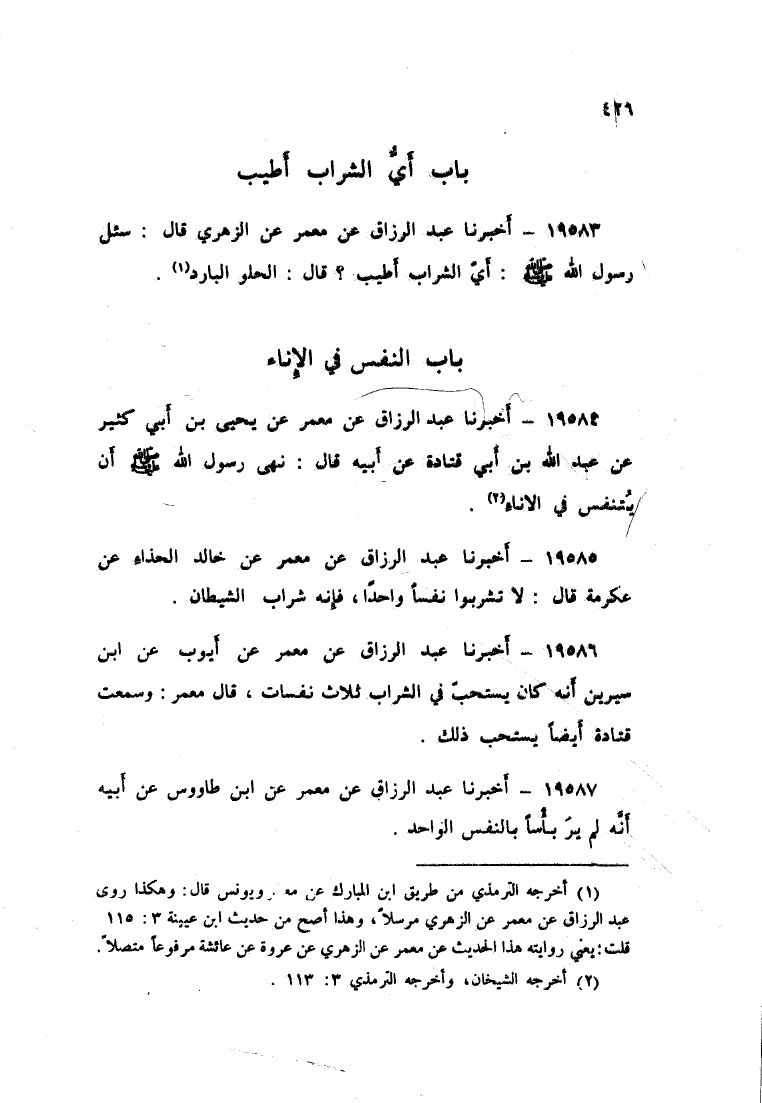 ٤٢٦
باب أيُّ الشراب أطيب
١٩٥٨٣ – أخبرنا عبد الرزاق عن معمر عن الزهري قال : سئل
رسول الله ﷺ : أيّ الشراب أطيب ؟ قال : الحلو البارد(١) .
باب النفس في الإناء
١٩٥٨٤ – أخبرنا عبد الرزاق عن معمر عن يحيى بن أبي كثير
عن عبد الله بن أبي قتادة عن أبيه قال : نهى رسول الله ﷺ أن
يُتنفس في الاناء(٢) .
١٩٥٨٥ – أخبرنا عبد الرزاق عن معمر عن خالد الحذاء عن
عكرمة قال : لا تشربوا نفساً واحدًا ، فإنه شراب الشيطان .
١٩٥٨٦ – أخبرنا عبد الرزاق عن معمر عن أيوب عن ابن
سيرين أنه كان يستحبّ في الشراب ثلاث نفسات ، قال معمر : وسمعت
قتادة أيضاً يستحب ذلك .
١٩٥٨٧ – أخبرنا عبد الرزاق عن معمر عن ابن طاووس عن أبيه
أنَّه لم يرَ بأْساً بالنفس الواحد .
(١) أخرجه الترمذي من طريق ابن المبارك عن ويونس قال : وهكذا روى
عبد الرزاق عن معمر عن الزهري مرسلاً ، وهذا أصح من حديث ابن عيينة ٣ : ١١٥
قلت : يعني روايته هذا الحديث عن معمر عن الزهري عن عروة عن عائشة مرفوعاً متصلاً .
(٢) أخرجه الشيخان ، وأخرجه الترمذي ٣ : ١١٣ .